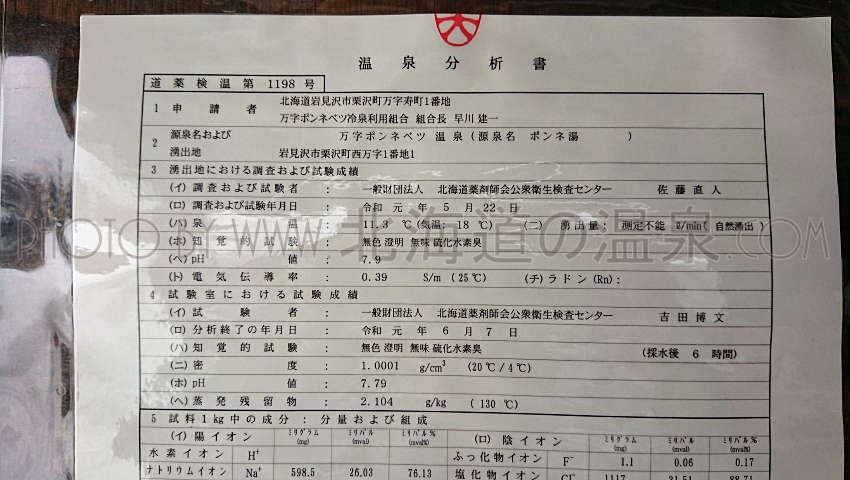 温泉分析書
道薬検温第 1198 号
1 申請者 北海道岩見沢市栗沢町万字寿町1番地
万字ポンネベツ冷泉利用組合 組合長 早川 建一
2 源泉名および 万字ポンネベツ 温泉 ( 源泉名 ポンネ湯 )
湧出地 岩見沢市栗沢町西万字1番地1
3 湧出地における調査および試験成績
(イ) 調査および試験者 : 一般財団法人 北海道薬剤師会公衆衛生検査センター 佐藤直人
(ロ) 調査および試験年月日 : 令和 元 年 5 月 22 日
(ハ) 泉温 : 11.3 ℃ (気温: 18 ℃) (ニ) 湧出量: 測定不能 ℓ/min( 自然湧出 )
(ホ) 知覚的試験 : 無色 澄明 無味 硫化水素臭
(ヘ) pH値 : 7.9
(ト) 電気伝導率 : 0.39 S/m ( 25℃) (チ) ラドン (Rn) :
4 試験室における試験成績
(イ) 試験者 : 一般財団法人 北海道薬剤師会公衆衛生検査センター 吉田博文
(ロ) 分析終了の年月日 : 令和 元 年 6 月 7 日
(ハ) 知覚的試験 : 無色 澄明 無味 硫化水素臭 (採水後 6 時間)
(ニ) 密度 : 1.0001 g/cm³ (20℃/4℃)
(ホ) pH値 : 7.79
(ヘ) 蒸発残留物 : 2.104 g/kg ( 130℃)
5 試料1kg中の成分 : 分量および組成
(イ) 陽イオン ミリグラム (mg) ミリバル (mval) ミリバル% (mval%) (ロ) 陰イオン ミリグラム (mg) ミリバル (mval) ミリバル% (mval%)
水素イオン H⁺ ふっ化物イオン F⁻ 1.1 0.06 0.17
ナトリウムイオン Na⁺ 598.5 26.03 76.13 塩化物イオン Cl⁻ 1117 31.51 88.71
PHOTO BY WWW.北海道の温泉.COM